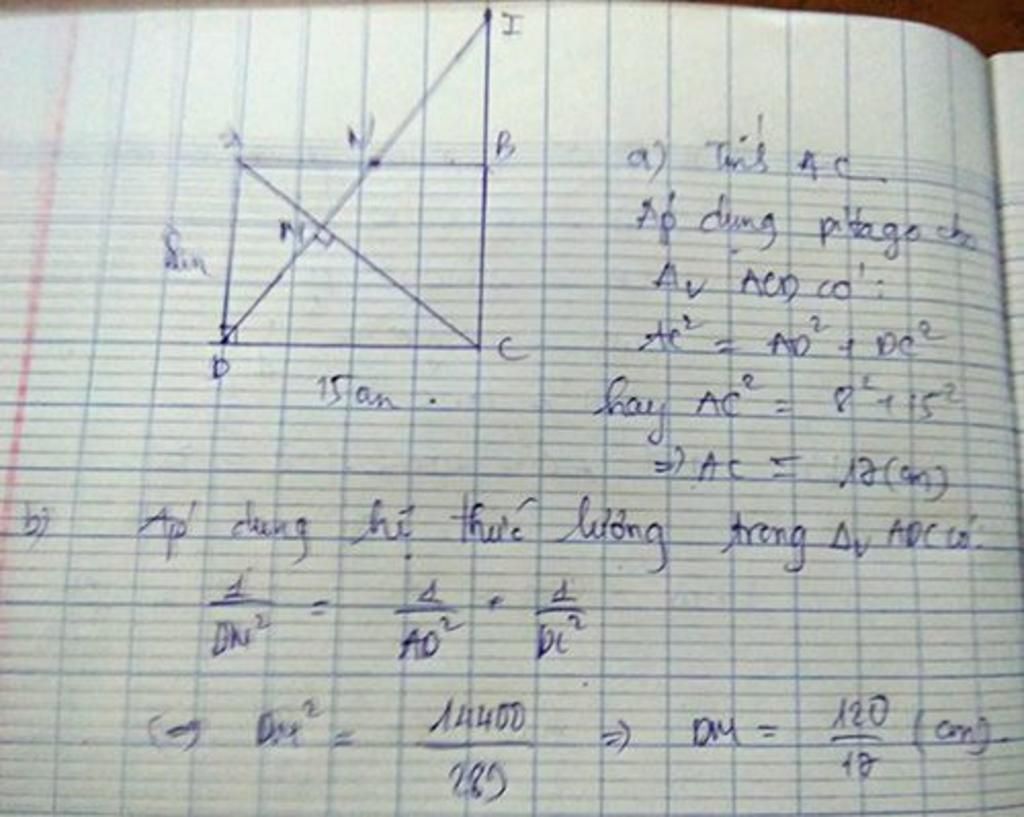 I
A N B
a) Tính AC
M
Áp dụng pitago cho
8cm
Δv ACD có:
AC² = AD² + DC²
D C
15cm.
hay AC² = 8² + 15²
=> AC = 17(cm)
b) Áp dụng hệ thức lượng trong Δv ADC có:
1/DM² = 1/AD² + 1/DC²
<=> DM² = 14400/289 => DM = 120/17 (cm).